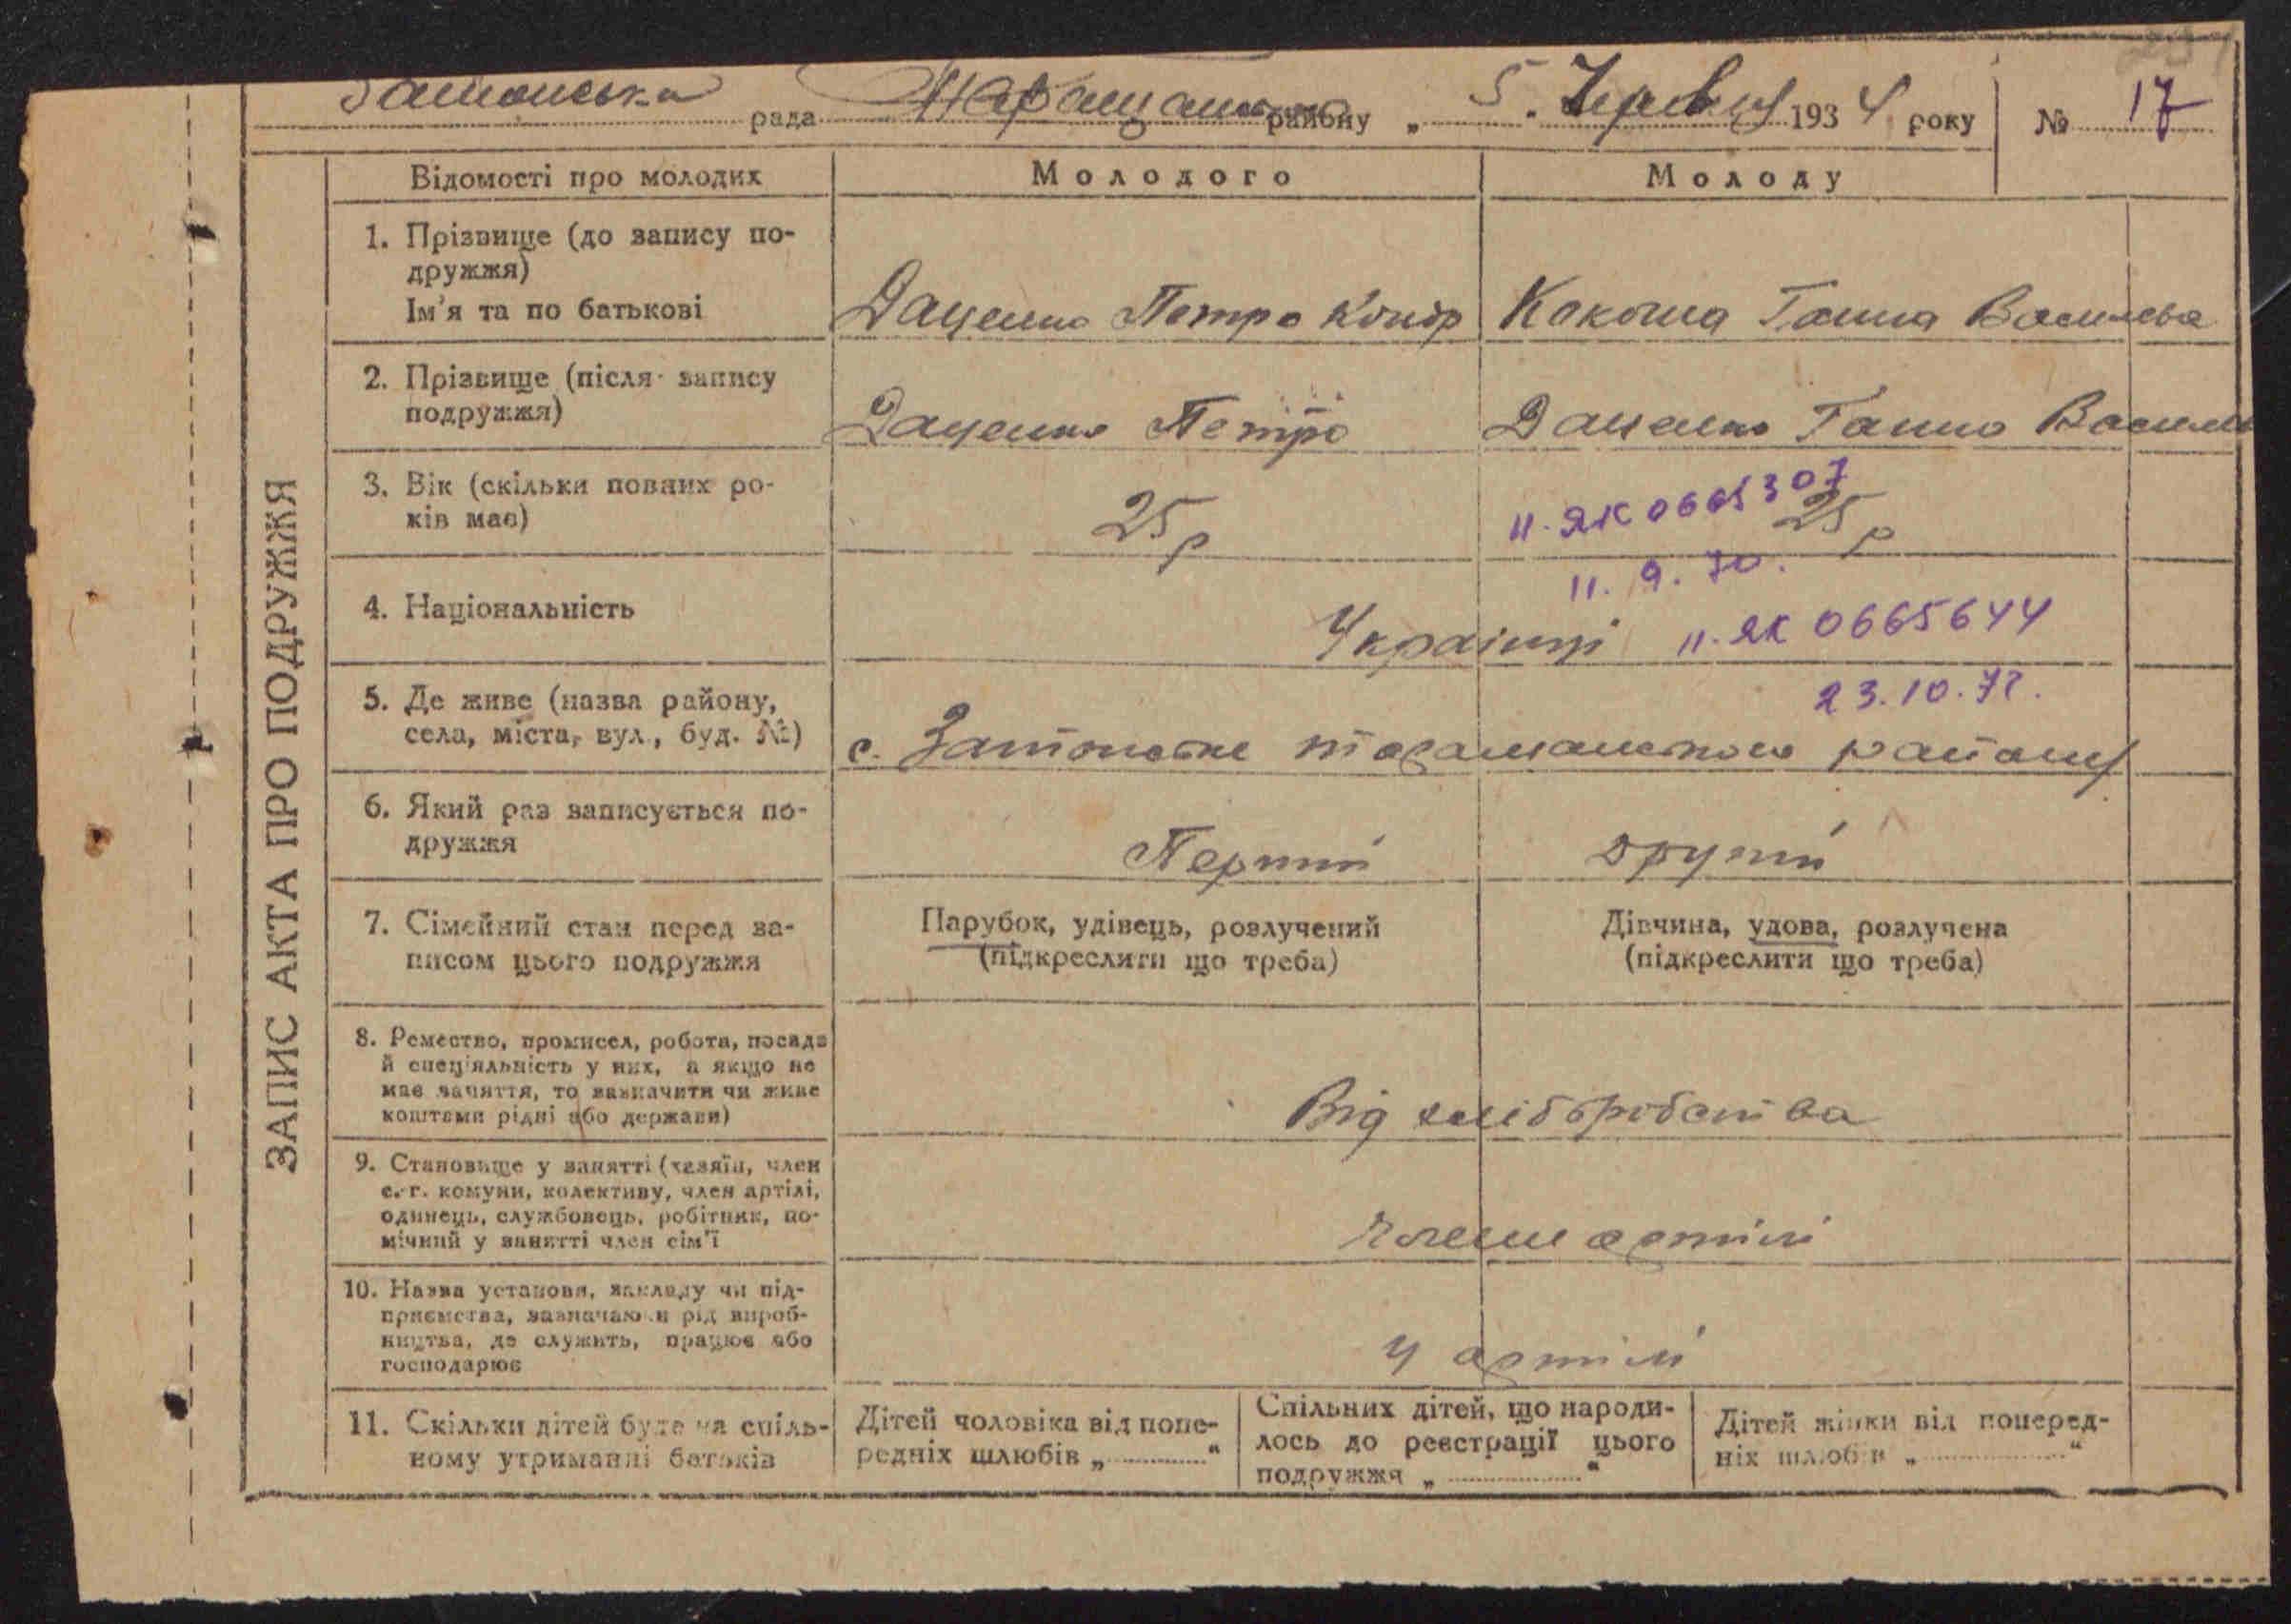 Затонська рада Таращанського району „5“ Червня 1934 року № 17
ЗАПИС АКТА ПРО ПОДРУЖЖЯ
Відомості про молодих Молодого Молоду
1. Прізвище (до запису по-
дружжя)
Ім'я та по батькові Даценко Петро Кондр Кокоша Ганна Василева
2. Прізвище (після запису
подружжя) Даценко Петро Даценко Ганна Василь
3. Вік (скільки повних ро-
ків має) 25 р 25 р
II-ЯК 0665307
11.9.70.
4. Національність Українці II-ЯК 0665644
23.10.72.
5. Де живе (назва району,
села, міста, вул., буд. №) с. Затонське таращанського району
6. Який раз записується по-
дружжя Перший другий
7. Сімейний стан перед за-
писом цього подружжя
Парубок, удівець, розлучений
(підкреслити що треба)
Дівчина, удова, розлучена
(підкреслити що треба)
8. Ремество, промисел, робота, посада
й спеціяльність у них, а якщо не
має заняття, то зазначити чи живе
коштами рідні або держави) Від хліборобства
9. Становище у занятті (хазяїн, член
с.-г. комуни, колективу, член артілі,
одинець, службовець, робітник, по-
мічний у занятті член сім'ї члени артілі
10. Назва установи, закладу чи під-
приємства, зазначаючи рід вироб-
ництва, де служить, працює або
господарює У артілі
11. Скільки дітей буде на спіль-
ному утриманні батьків
Дітей чоловіка від попе-
редніх шлюбів „ “
Спільних дітей, що народи-
лось до реєстрації цього
подружжя „ “
Дітей жінки від поперед-
ніх шлюбів „ “